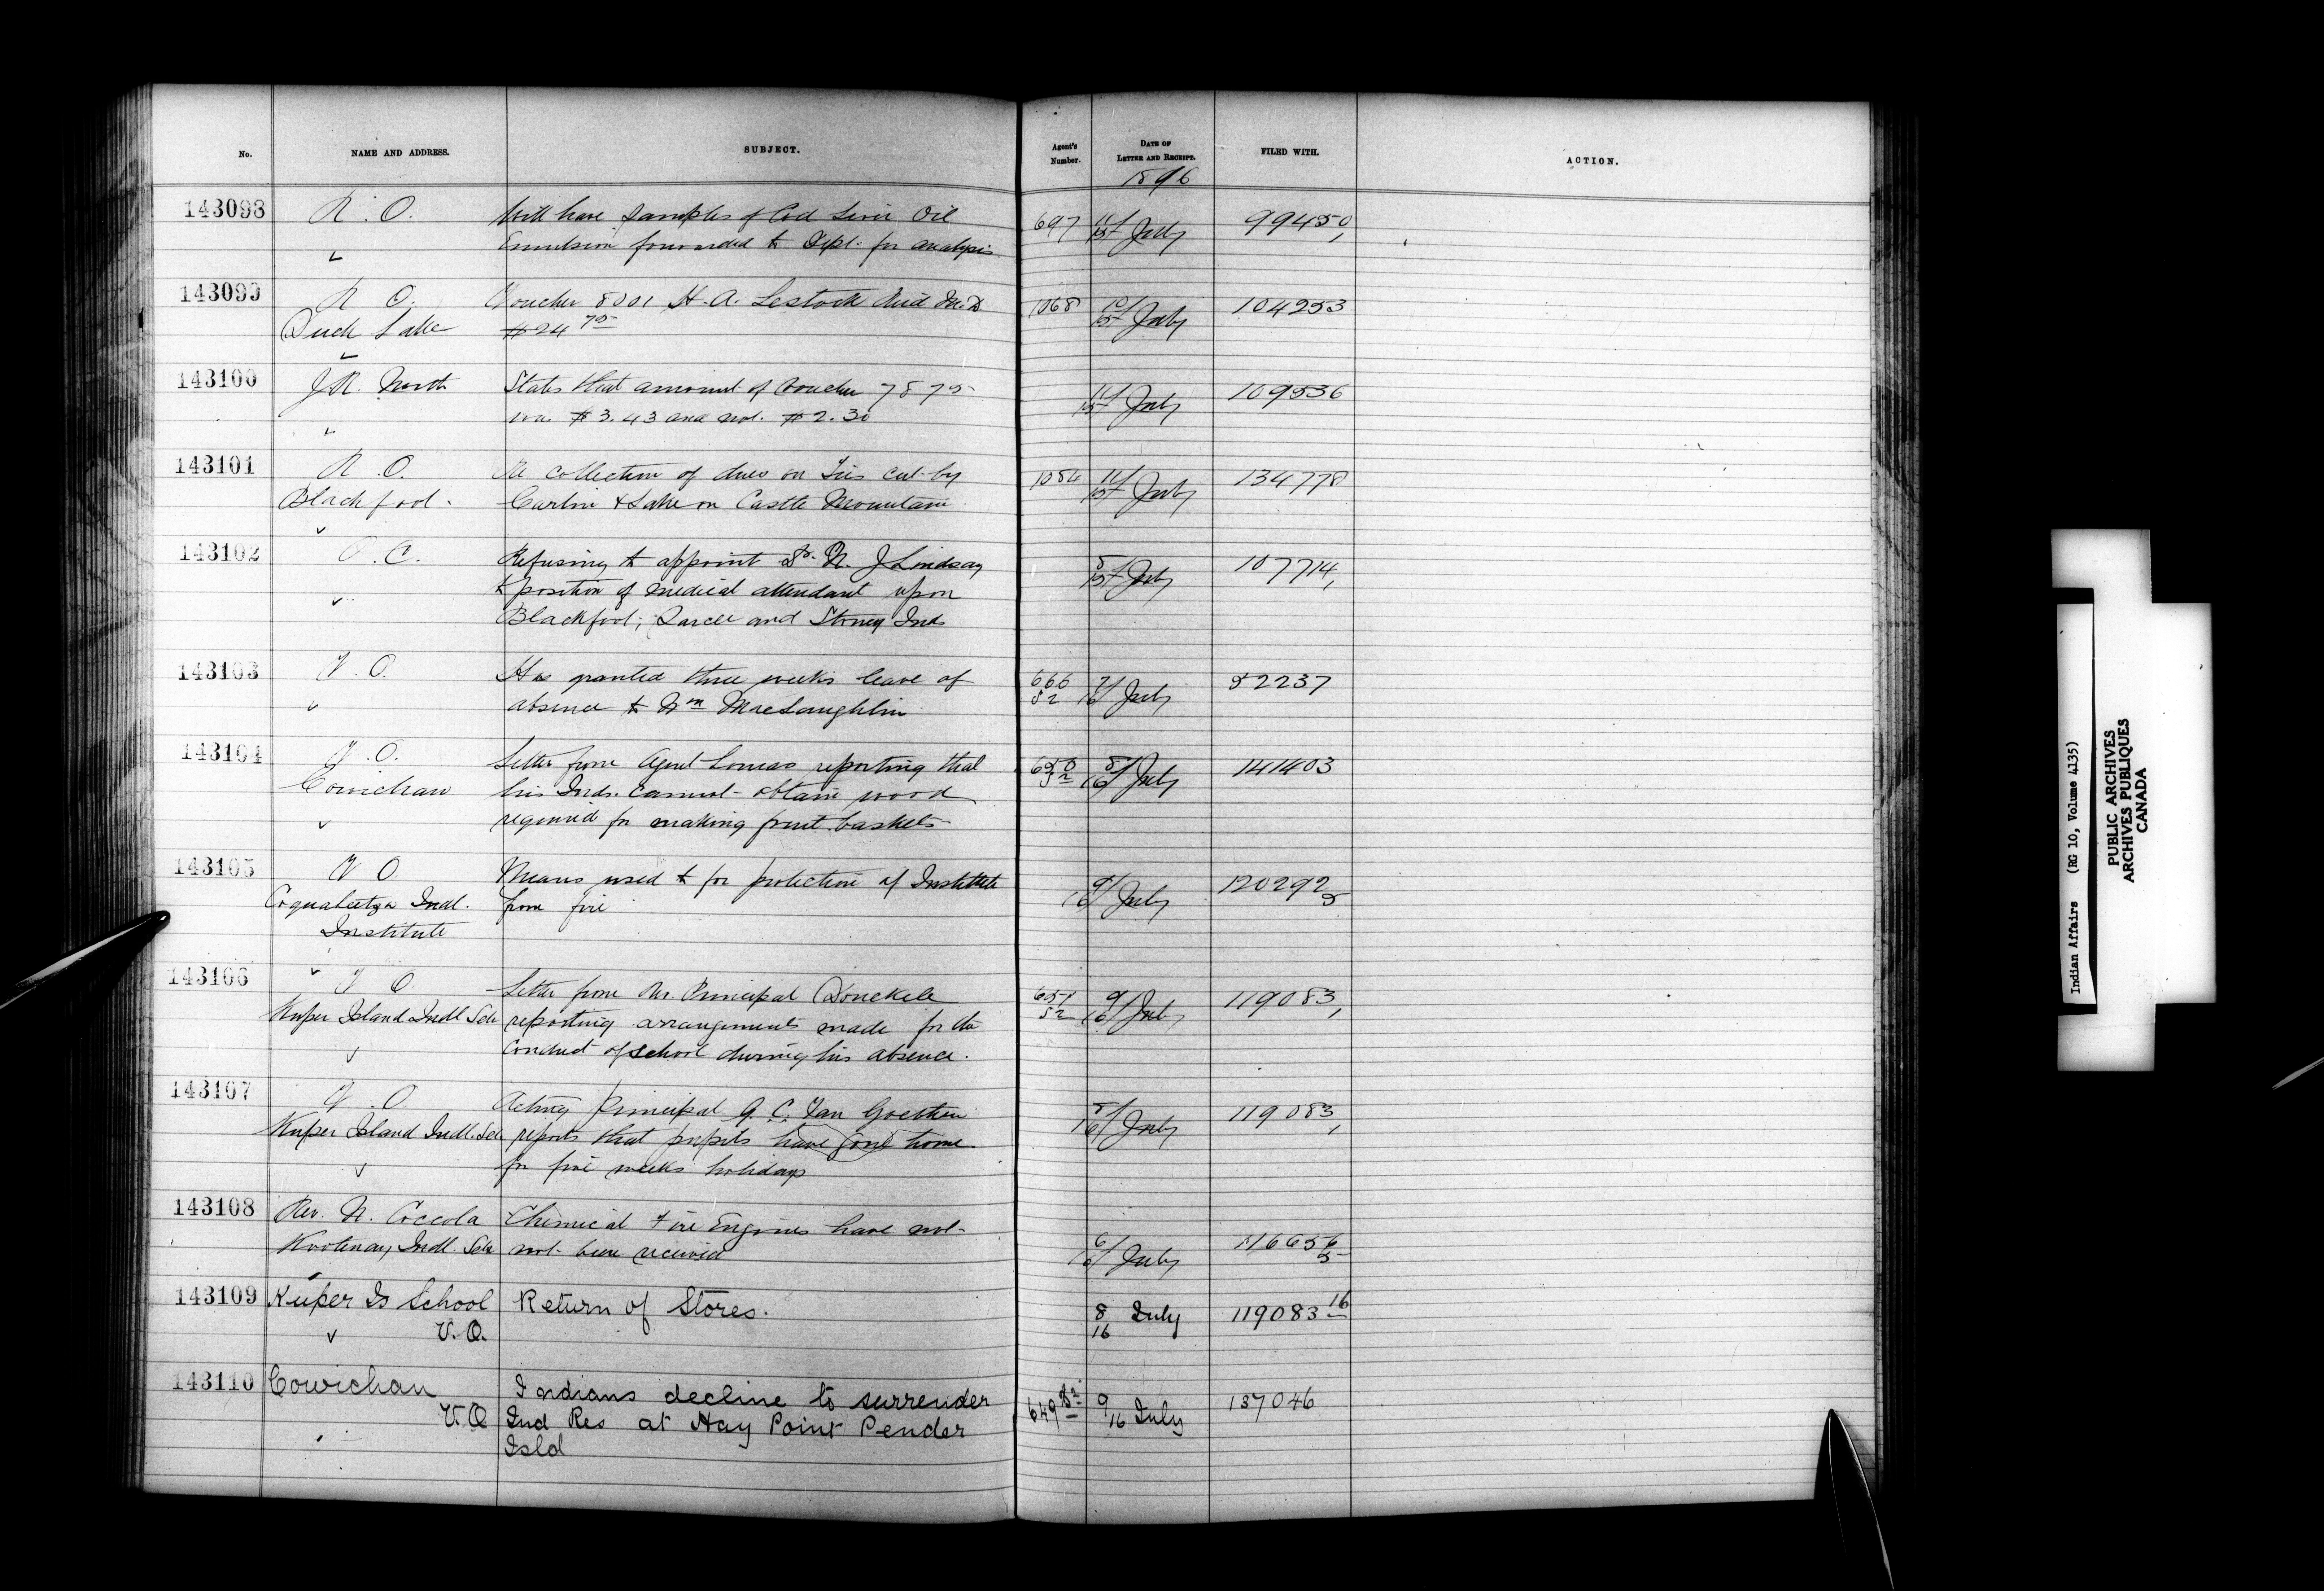 No. NAME AND ADDRESS. SUBJECT. Agent's Number. DATE OF LETTER AND RECEIPT. FILED WITH. ACTION.
1896
143098 R. O. Will have samples of Cod Liver Oil 697 11/15 July 99450,
Emulsion forwarded to Dept. for analysis
143099 R O. Voucher 8001 H. A. Lestock Reid M.D. 1068 10/15 July 104253
Duck Lake $24 75
143100 J. R. North States that amount of voucher 7875 11/15 July 109536
was $3.43 and not $2.30
143101 R. O. Re collection of dues on Ties cut by 1084 11/15 July 134778
Blackfoot. Carlin & Lake on Castle Mountain
143102 P. C. Refusing to appoint Dr. N. J Lindsay 8/15 July 107714,
to position of medical attendant upon
Blackfoot, Sarcee and Stoney Inds
143103 V. O. Has granted three weeks leave of 666/52 7/16 July 82237
absence to Wm MacLaughlin
143104 V. O. Letter from Agent Lomas reporting that 650/52 8/16 July 141403
Cowichan his Inds. cannot obtain wood
required for making fruit baskets
143105 V O. Means used to for protection of Institute 9/16 July 120292 5
Coqualeetza Indl. from fire
Institute
143106 V O Letter from Mr. Principal Donckele 651/52 9/16 July 119083,
Kuper Island Indl Sch reporting arrangements made for the
conduct of school during his absence.
143107 V. O Acting Principal G. C. Van Goethem 8/16 July 119083,
Kuper Island Indl. Sch reports that pupils have gone home
for five weeks holidays
143108 Rev. N. Coccola Chemical Fire Engines have not
Kootenay Indl. Sch not been received 6/16 July 116656 5
143109 Kuper Is School Return of Stores. 8/16 July 119083 16
V. O.
143110 Cowichan Indians decline to surrender 649 52 9/16 July 137046
V. O Ind Res at Hay Point Pender
Isld
Indian Affairs (RG 10, Volume 4135)
PUBLIC ARCHIVES
ARCHIVES PUBLIQUES
CANADA